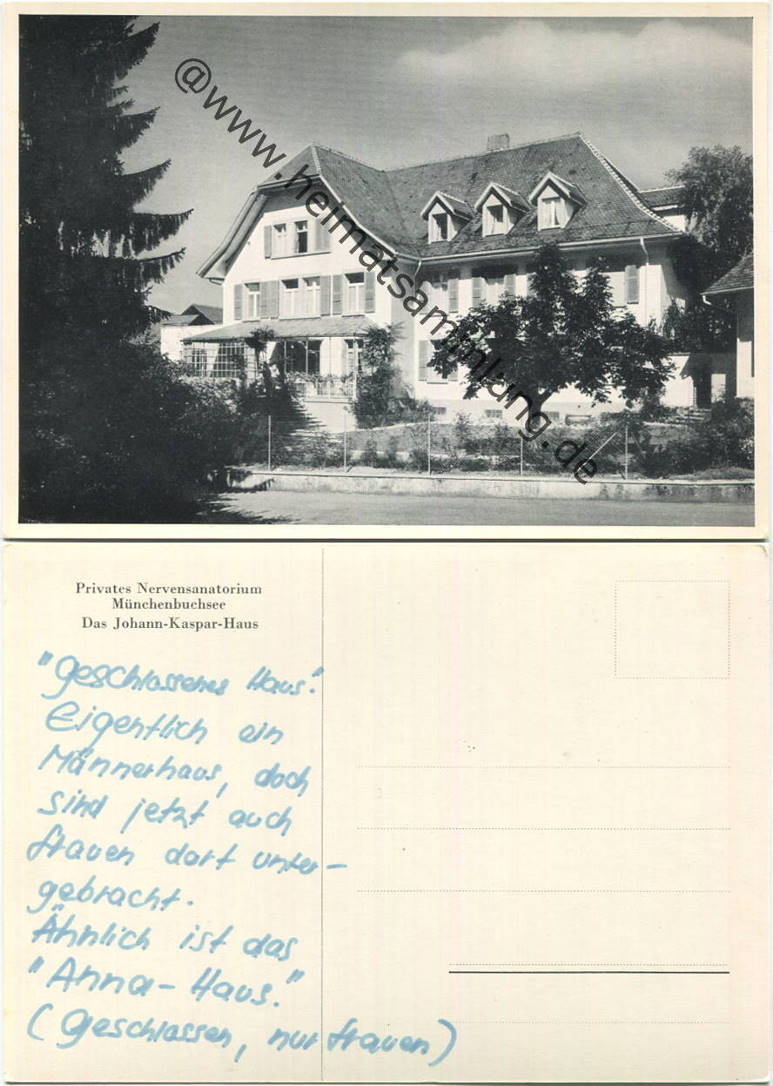 @www.heimatsammlung.de
Privates Nervensanatorium
Münchenbuchsee
Das Johann-Kaspar-Haus
"Geschlossenes Haus".
Eigentlich ein
Männerhaus, doch
sind jetzt auch
Frauen dort unter-
gebracht.
Ähnlich ist das
"Anna-Haus."
(Geschlossen, nur Frauen)